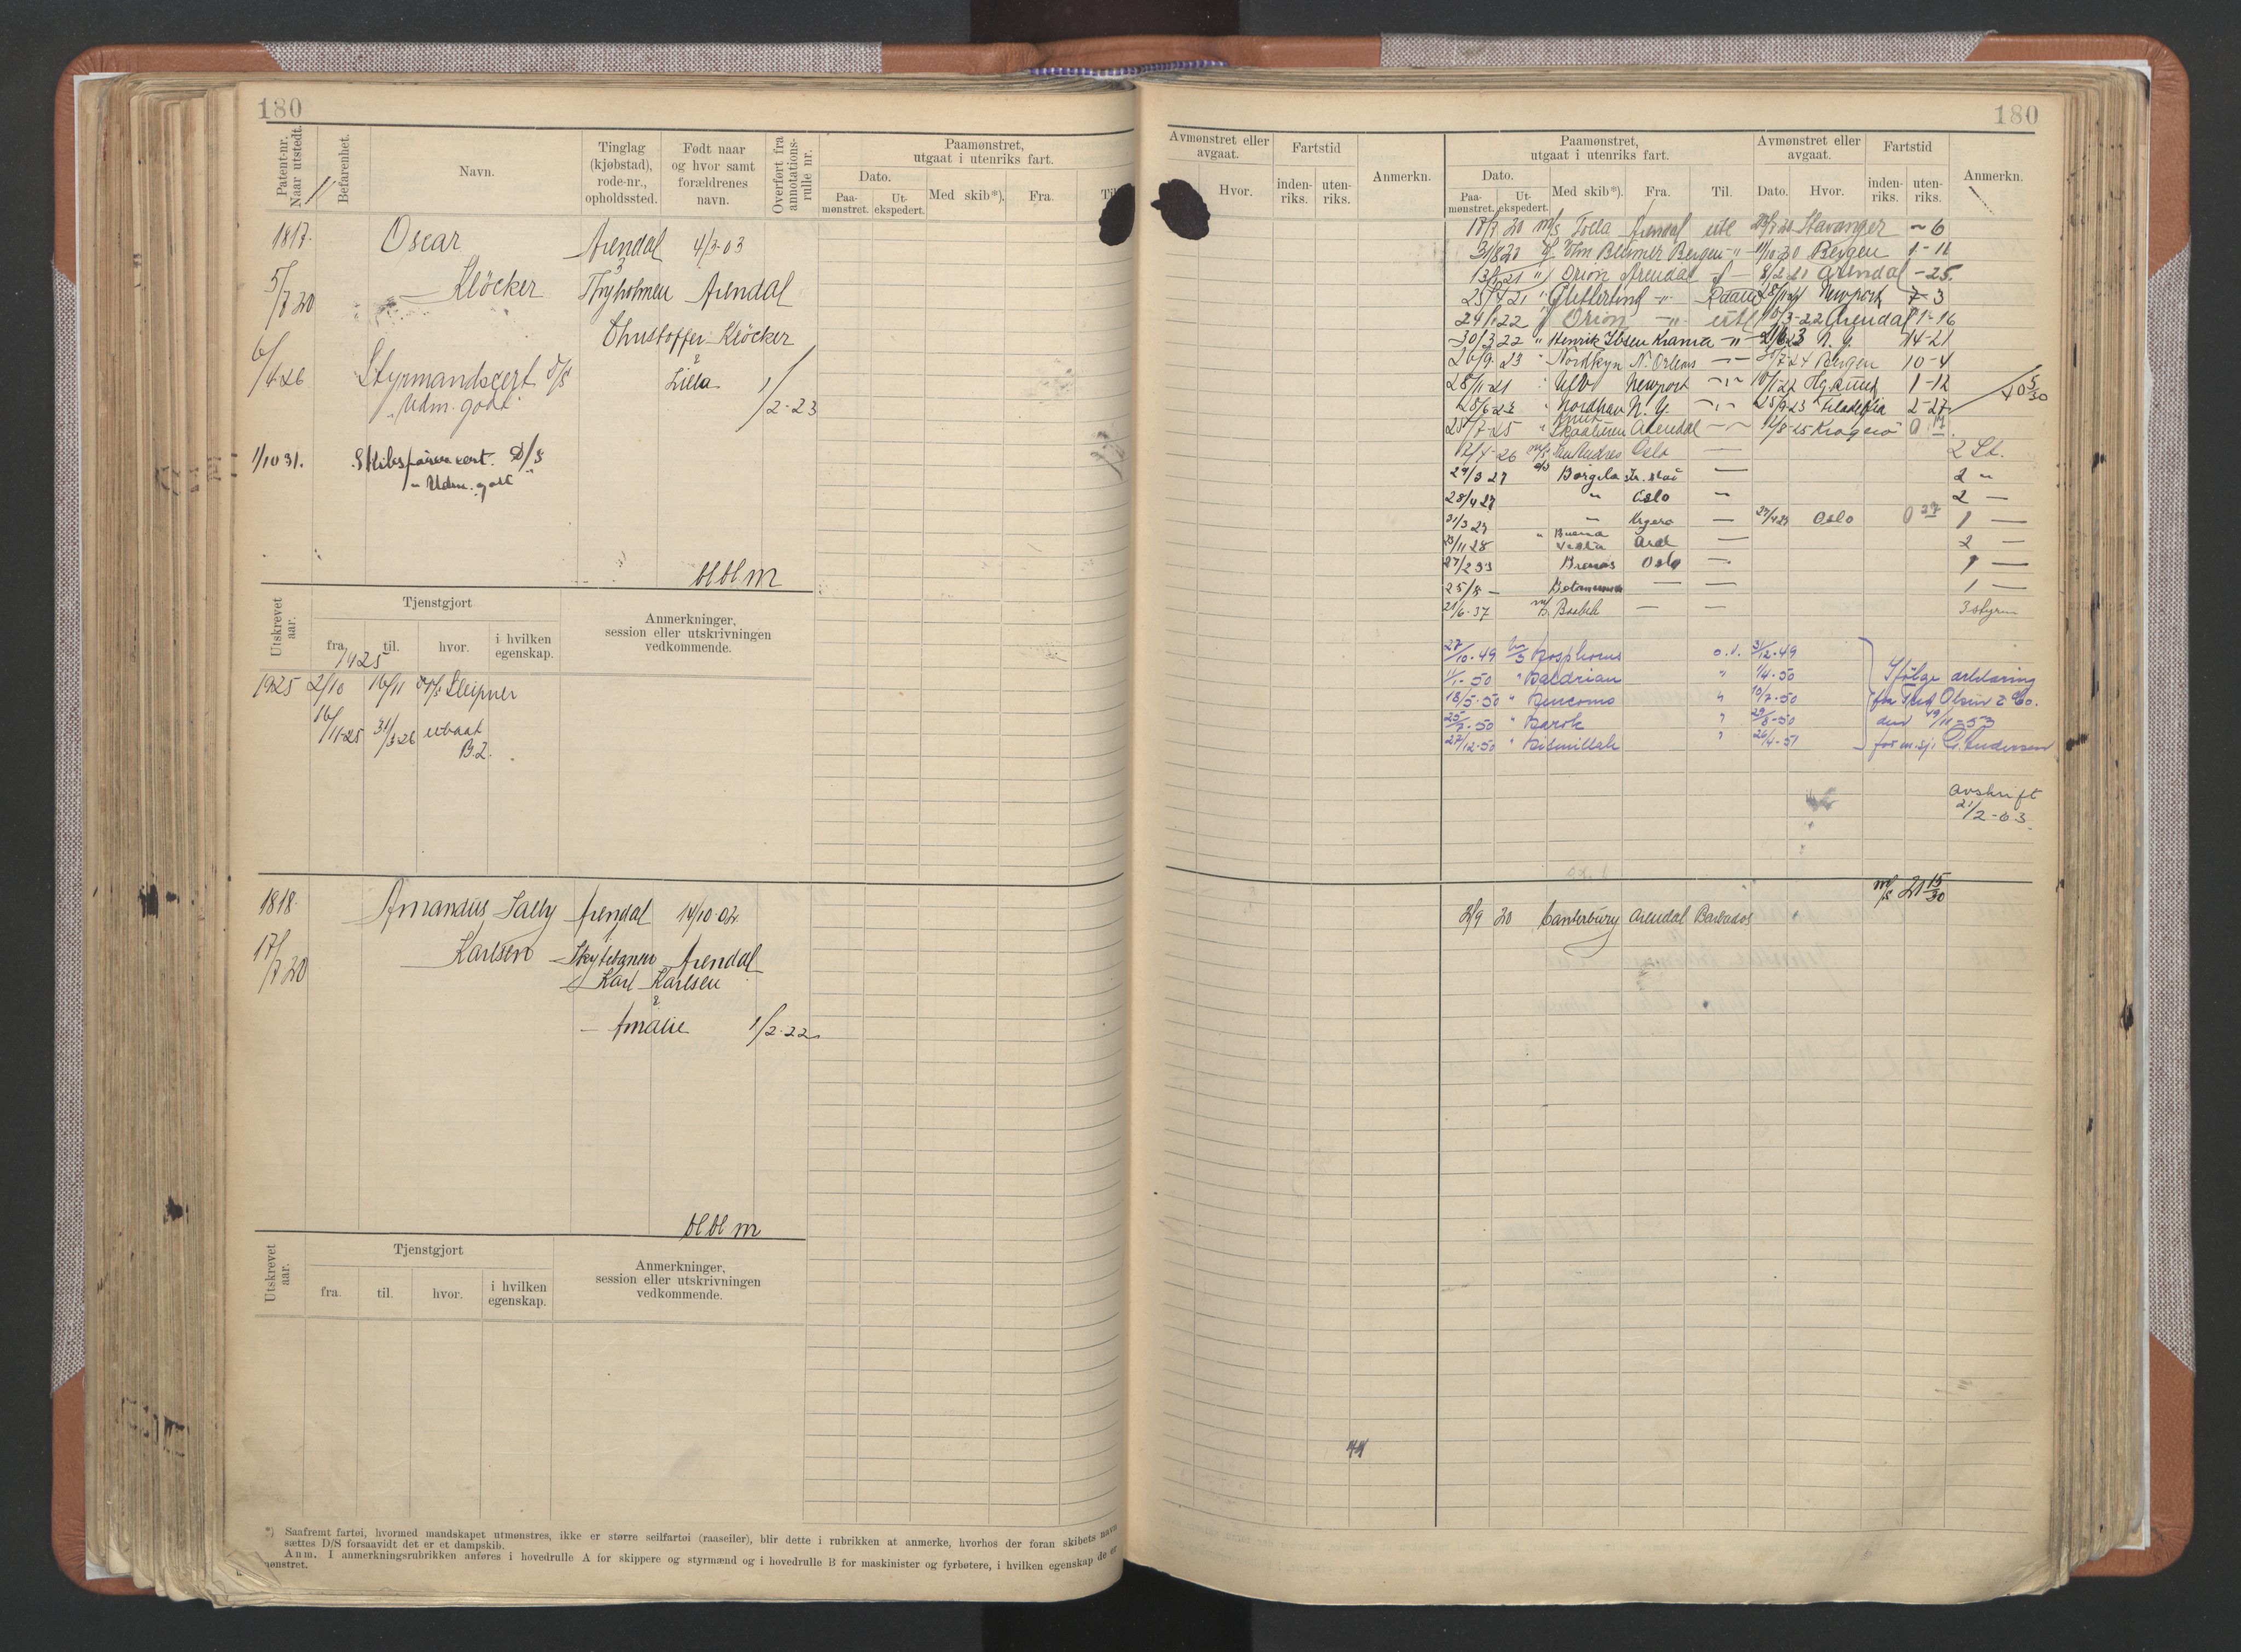 180
Patent-nr. Naar utstedt.
Befarenhet.
Navn.
Tinglag (kjøbstad), rode-nr., opholdssted.
Født naar og hvor samt forældrenes navn.
Overført fra annotations-rulle nr.
Paamønstret, utgaat i utenriks fart.
Dato.
Paa-mønstret.
Ut-ekspedert.
Med skib*).
Fra.
Til
1817.
Oscar
Arendal 4/3-03
5/7 20
Klöcker
Arendal
Christoffer Klöcker
&
6/4 26
Styrmandscert D/S
Lilla
1/2-23
"Udm. godt"
1/10 31.
D/S
"Udm. godt"
bl bl m
Utskrevet aar.
Tjenstgjort
fra.
til.
hvor.
i hvilken egenskap.
Anmerkninger, session eller utskrivningen vedkommende.
1925
1925 2/10 16/11 Sleipner
16/11-25 31/3-26 ubaat
B.2.
1818.
Amandus Sally
Arendal 14/10-02
1
17/7 20
Karlsen
Arendal
Karl Karlsen
&
Amalie 1/2-22
bl bl m
Utskrevet aar.
Tjenstgjort
fra.
til.
hvor.
i hvilken egenskap.
Anmerkninger, session eller utskrivningen vedkommende.
*) Saafremt fartøi, hvormed mandskapet utmønstres, ikke er større seilfartøi (raaseiler), blir dette i rubrikken at anmerke, hvorhos der foran skibets navn
sættes D/S forsaavidt det er et dampskib.
Anm. I anmerkningsrubrikken anføres i hovedrulle A for skippere og styrmænd og i hovedrulle B for maskinister og fyrbøtere, i hvilken egenskap de er
mønstret.
180
Avmønstret eller avgaat.
Hvor.
Fartstid
inden-riks.
uten-riks.
Anmerkn.
Paamønstret, utgaat i utenriks fart.
Dato.
Paa-mønstret.
Ut-ekspedert.
Med skib*).
Fra.
Til.
Avmønstret eller avgaat.
Dato.
Hvor.
Fartstid
inden-riks.
uten-riks.
Anmerkn.
17/7 20 m/s Tolla Arendal utl Stavanger - 6
31/8 20 Bergen - " - 11/10-20 Bergen 1-11
13/1 21 " Orion Arendal 8/2 21 Arendal - 25
25/4 21 " Glitterting - " - Newport 7 3
24/1 22 " Orion - " - utl 10/3-22 Arendal 1-16
30/3 22 " Henrik Ibsen Krania - " - N. Y. 14-21
26/9 23 " Nordkyn N. Orleans Bergen 10-4
28/11-21 " Newport 10/1-22 1-12
28/6-23 " Nordhav N. Y. 25/9-23 2-27
40 5/30
25/7-25 " Arendal 11/8-25 Kragerø 0 17
12/4-26 Oslo 2 St.
29/3 27 Borgila 2 "
28/4 27 " Oslo " 2 —
31/3 29 — — Oslo 0 27 1 —
23/11 28 " Buena Vista Ardl — 2 —
27/2 33 Oslo — 1 —
25/8 — — — 1 —
21/6-37 — — 3 styrm
27/10-49 Bosphorus 31/12-49
1/1-50 " Baldrian " 1/4-50 Ifølge erklæring
18/5-50 " " 10/7-50 fra Fred Olsen & Co.
25/7-50 " Barok " 29/8-50 den 19/11-53
27/12-50 " Bismillah " 26/4-51 for m.sj. G. Andersen
avskrift
21/2-63
21 15/30
2/9 20 Canterbury Arendal Barbados
44